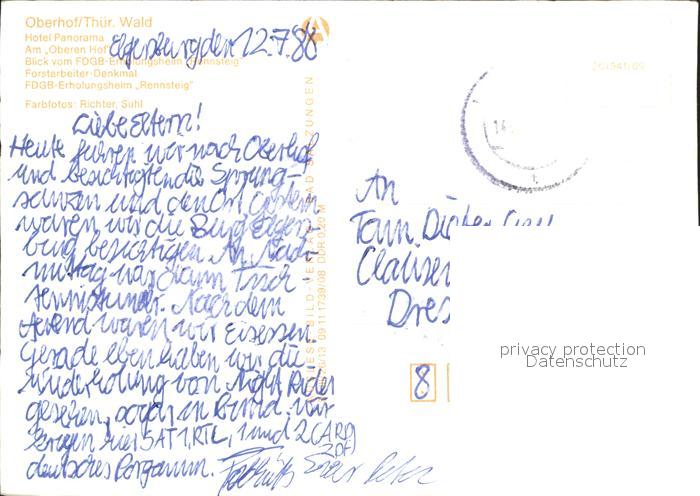 Oberhof/Thür. Wald
Hotel Panorama
Am „Oberen Hof"
Blick vom FDGB-Erholungsheim „Rennsteig"
Forstarbeiter-Denkmal
FDGB-Erholungsheim „Rennsteig"
Farbfotos: Richter, Suhl
Elgersburg den 12.7.88
Liebe Eltern!
Heute fuhren wir nach Oberhof
und besichtigten die Sprung-
schanzen und den Ort. Gestern
waren wir die Burg Elgers-
burg besichtigen. Am Nach-
mittag war dann Tisch-
tennisturnier. Nach dem
Abend waren wir Eisessen.
Gerade eben haben wir die
Wiederholung von Night Rider
gesehen,
kriegen hier SAT1, RTL, 1 und 2 (ARD
ZDF)
deutsches Programm.
An
Fam.
Dres
8
privacy protection
Datenschutz